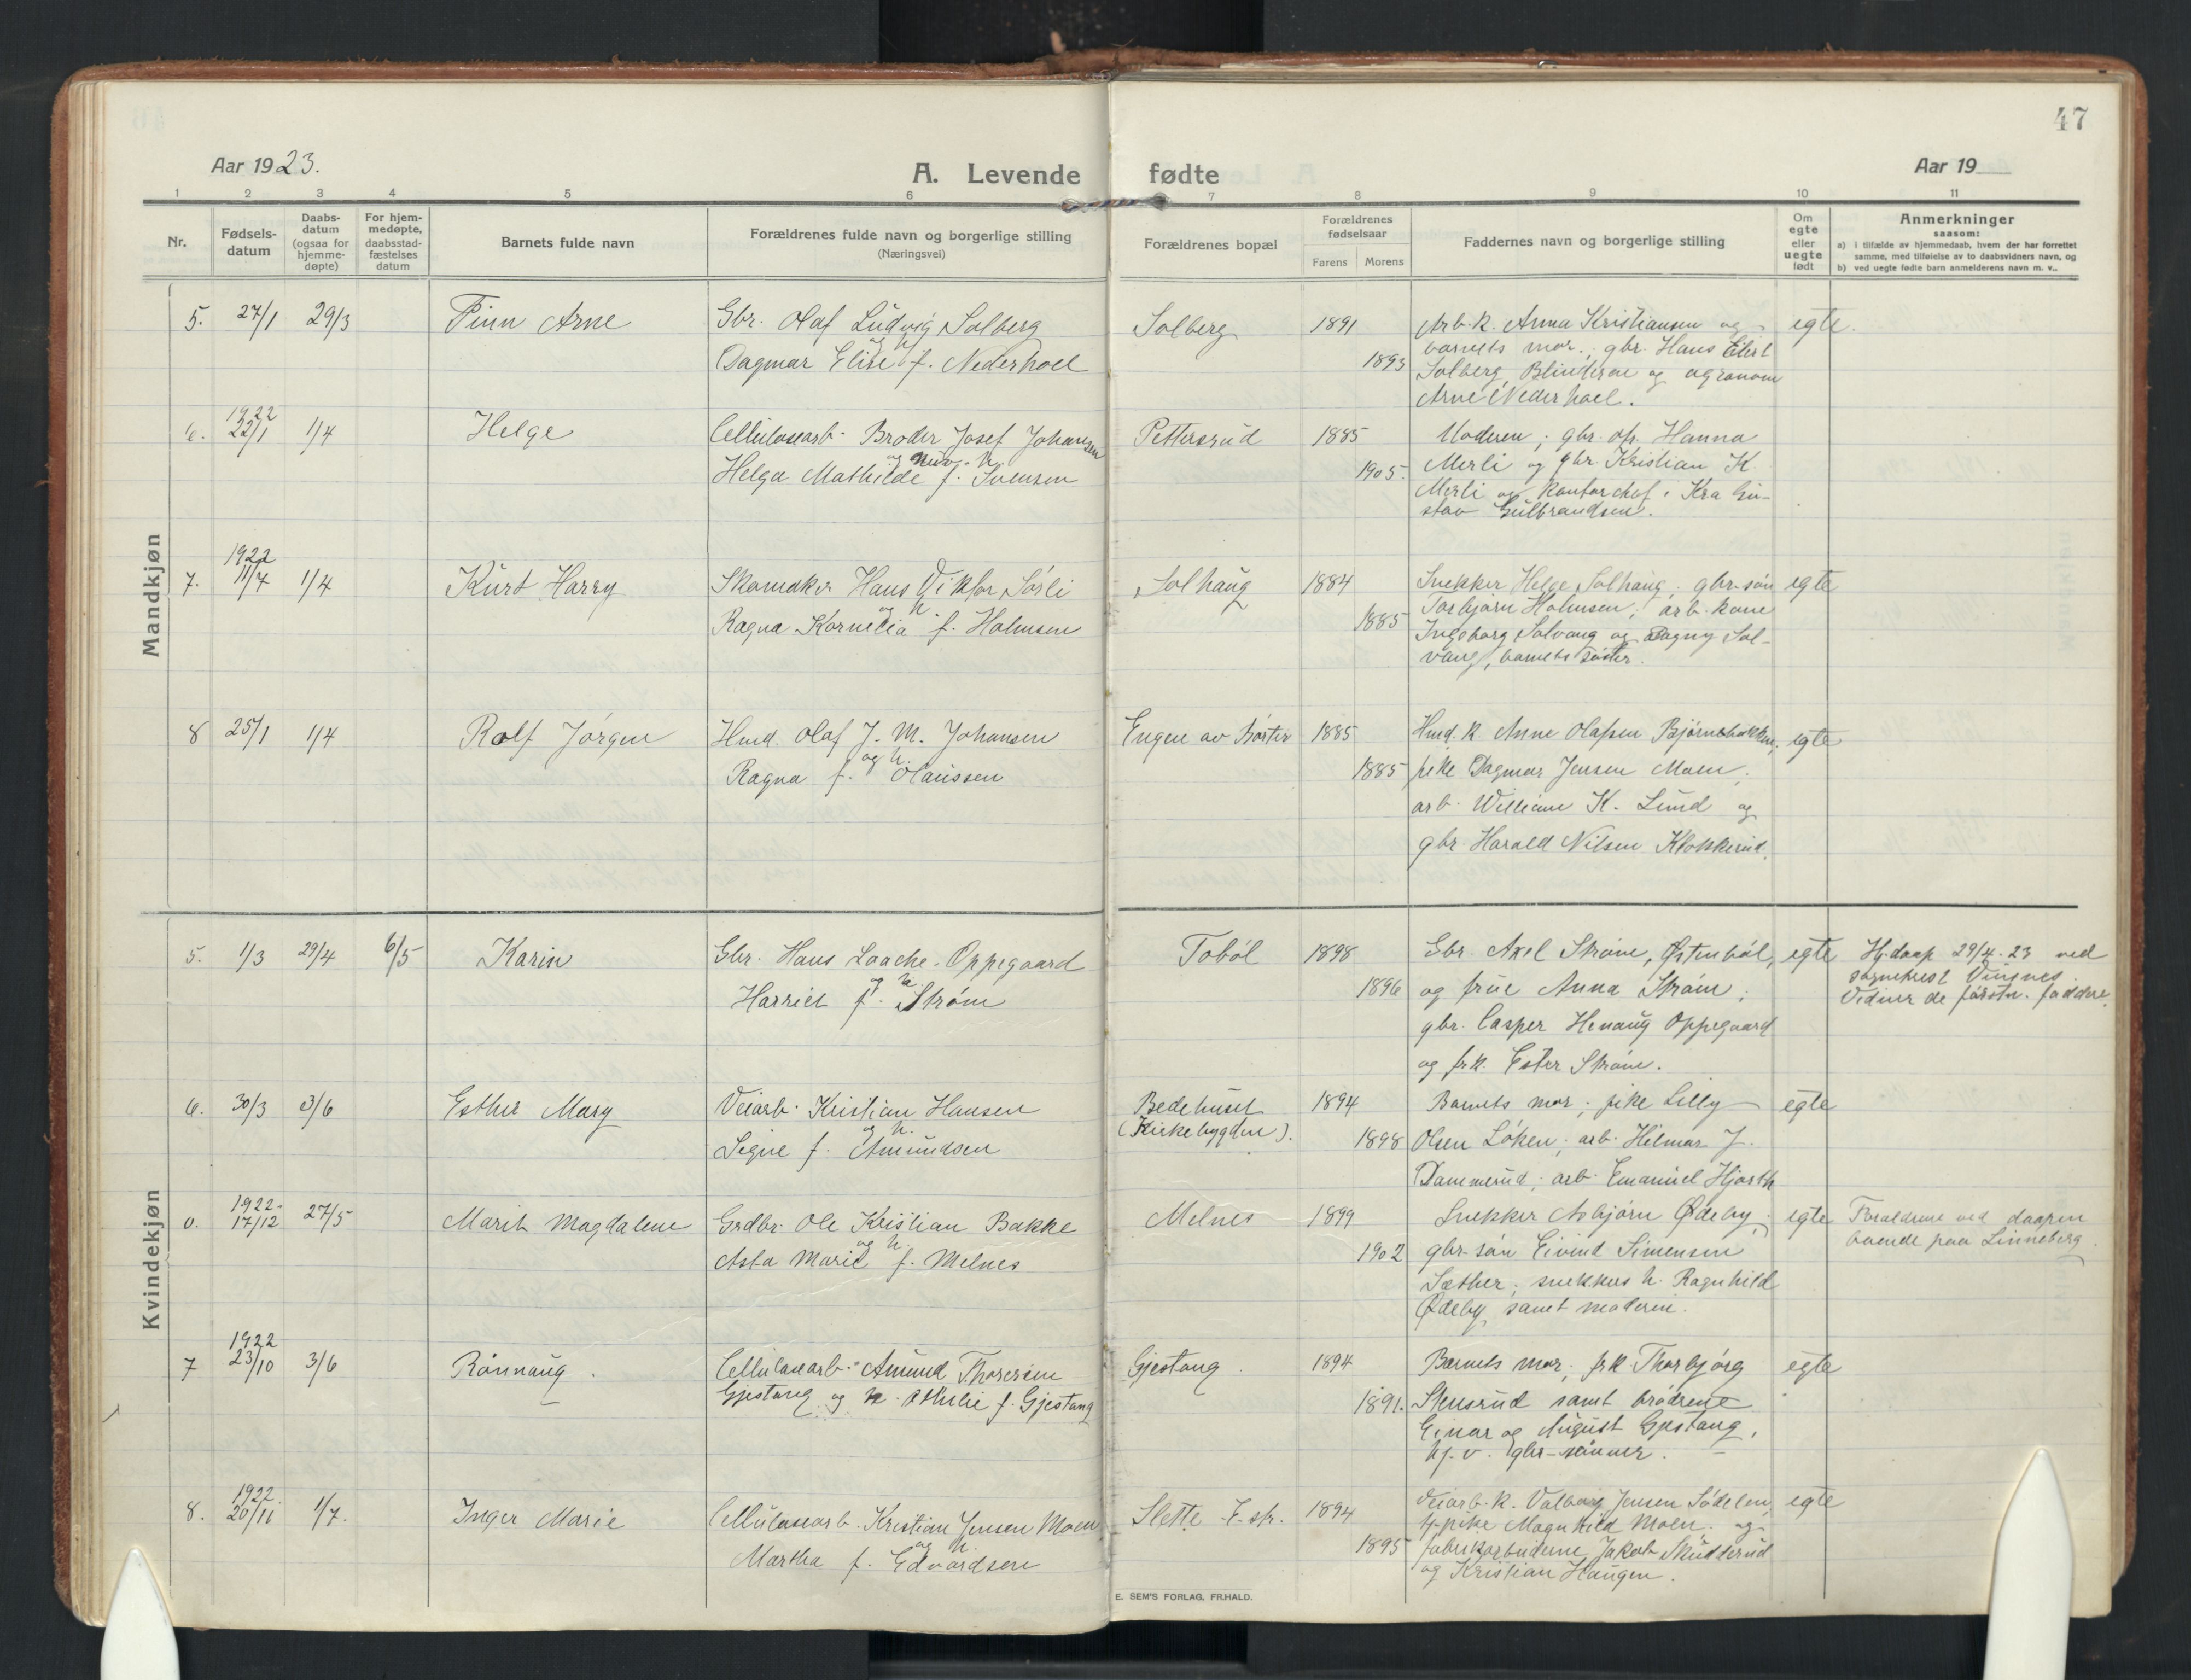 47
Aar 1923.
A. Levende fødte
Aar 19
1 2 3 4 5 6 7 8 9 10 11
Nr.
Fødsels-
datum
Daabs-
datum
(ogsaa for
hjemme-
døpte)
For hjem-
medøpte,
daabsstad-
fæstelses
datum
Barnets fulde navn
Forældrenes fulde navn og borgerlige stilling
(Næringsvei)
Forældrenes bopæl
Forældrenes
fødselsaar
Farens Morens
Faddernes navn og borgerlige stilling
Om
egte
eller
uegte
født
Anmerkninger
saasom:
a) i tilfælde av hjemmedaab, hvem der har forrettet
samme, med tilføielse av to daabsvidners navn, og
b) ved uegte fødte barn anmelderens navn m. v..
Mandkjøn
5. 27/1 29/3
Finn Arne
Gbr. Olaf Ludvig Solberg
og h.
Dagmar Elise f. Nederhoel
Solberg
1891
1893
Arb.k. Anna Kristiansen og
barnets mor.; gbr. Hans
Solberg, Blinderne og agronom
Arne Nederhoel.
egte.
6. 1922
22/1 1/4
Helge
Cellulosearb. Broder Josef Johansen
og h.
Helga Mathilde f. Svensen
Pettersrud
1885
1905.
Moderen; gbr. Hanna
Merli og gbr. Kristian K.
Merli og kontorchef i Kra Gu-
stav Gulbrandsen.
7. 1922
11/7 1/4
Kurt Harry
Skomaker Hans Viktor Sørli
og h.
Ragna Kornelia f. Holmsen
Solhaug
1884
1885
Snekker Helge Solhaug; gbr-søn
Torbjørn Holmsen; arb. kone
Ingeborg Solvang og Dagny Sol-
vang, barnets søster.
egte
8 25/1 1/4
Rolf Jørgen
Hmd. Olaf J. M. Johansen
og h.
Ragna f. Olaussen
Engen av Børter
1885
1885
Hmd. k. Anne Olafsen Bjørnebakken;
pike Dagmar Jensen Moen;
arb. William K. Lund og
gbr. Harald Nilsen Klokkerud.
egte
Kvindekjøn
5. 1/3 29/4 6/5
Karin
Gbr. Hans Laache-Oppegaard
og h.
Harriet f. Strøm
Tobøl
1898
1896
Gbr. Axel Strøm, Østenbøl,
og frue Anna Strøm;
gbr. Casper Henaug Oppegaard
og frk. Ester Strøm.
egte
Hj.daap 29/4. 23 ved
sogneprest Vinsnes.
Vidner de førstn. faddere.
6. 30/3 3/6
Esther Mary
Veiarb. Kristian Hansen
og h.
Signe f. Amundsen
Bedehuset
(Kirkebygden).
1894
1898
Barnets mor; pike Lilly
Olsen Løken; arb. Hilmar J.
Dammerud; arb. Emanuel Hjorth
egte
0. 1922-
17/12 27/5
Marit Magdalene
Grdbr. Ole Kristian Bakke
og h.
Asta Marie f. Melnes
Melnes
1899
1902
Snekker Asbjørn Ødeby;
gbr-søn Eivind Simensen
Sæther; snekkers h. Ragnhild
Ødeby, samt moderen.
egte
Forældrene ved daapen
boende paa Linneberg.
7 1922
23/10 3/6
Rønnaug.
Cellulosearb. Amund Thoresen
Gjestang og h. Othilie f. Gjestang
Gjestang.
1894
1891.
Barnets mor; frk. Thorbjørg
Stensrud samt brødrene
Einar og August Gjestang,
hj.v. gbr-sønner.
egte
8. 1922.
20/11 1/7.
Inger Marie
Cellulosearb. Kristian Jensen Moen
og h.
Martha f. Edvardsen
Slette E-str.
1894
1895
Veiarb.k. Valborg Jensen Sødelen,
tj-pike Magnhild Moen. og
fabrikarbeiderne Jakob Skudderud
og Kristian Haugen.
egte
E. SEM'S FORLAG, FR.HALD.